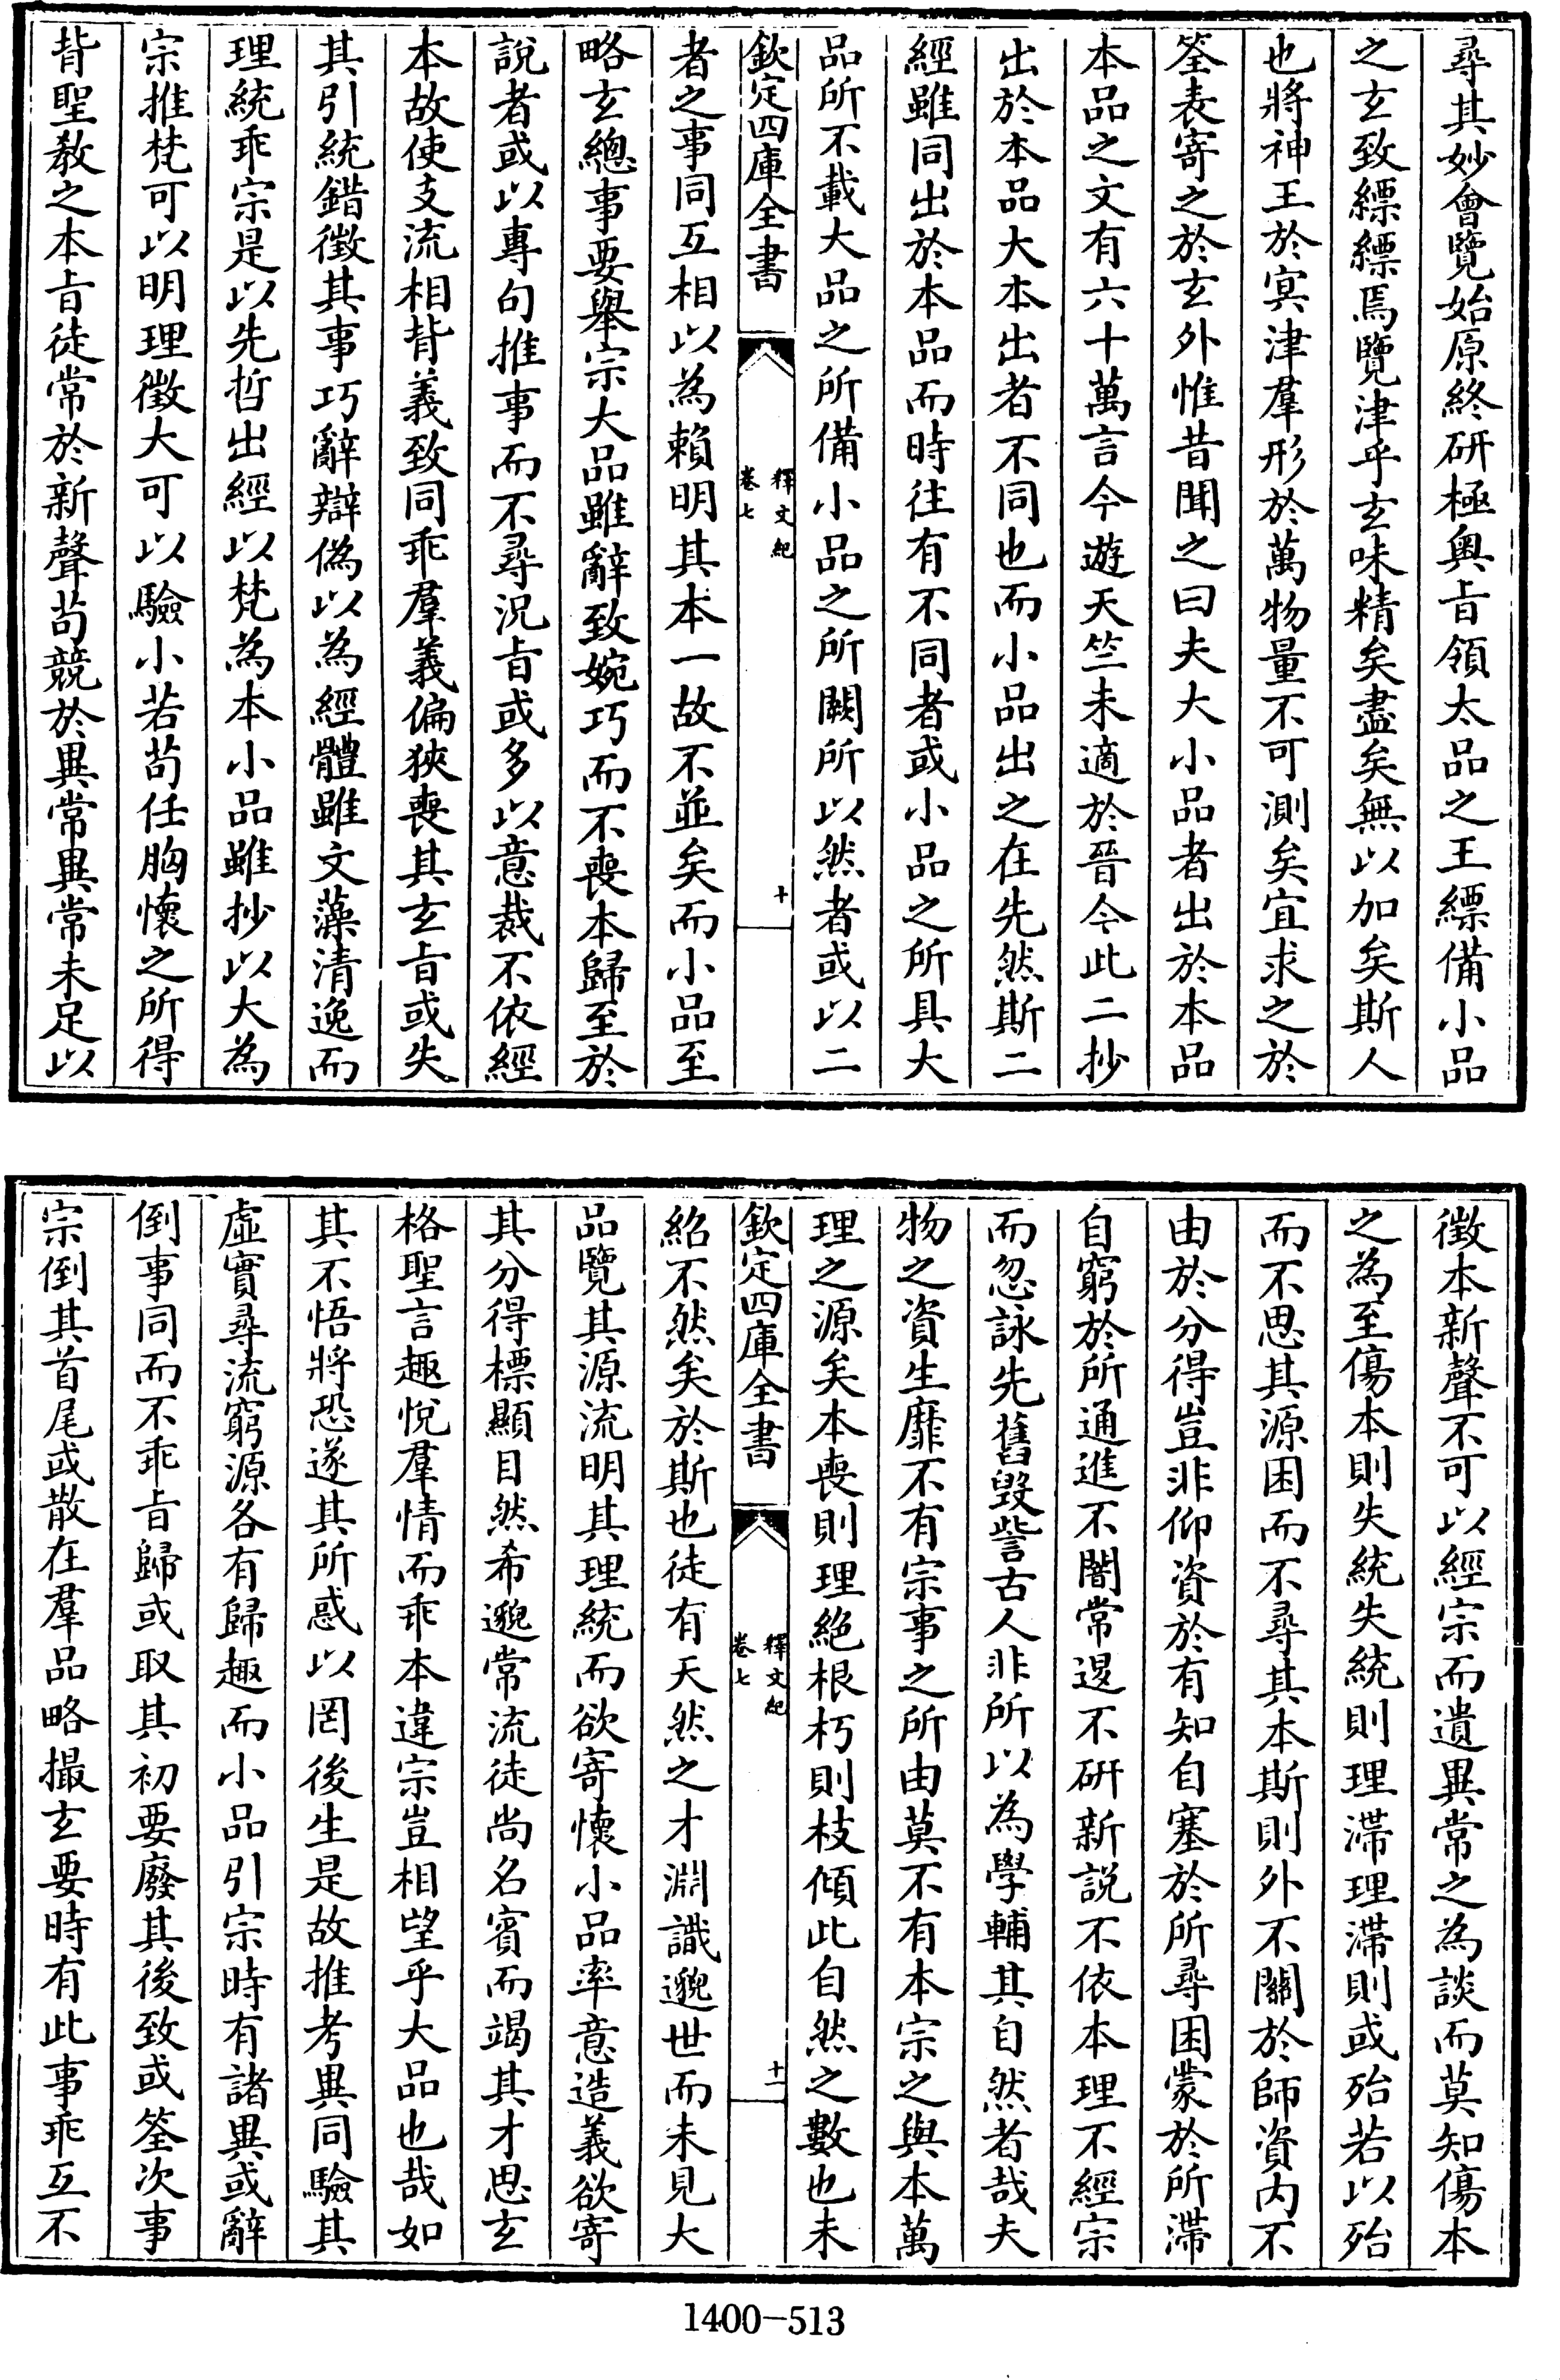 尋其妙會覽始原終研極奧旨領太品之王縹備小品
之玄致縹縹焉覽津乎玄味精矣盡矣無以加矣斯人
也將神王於冥津羣形於萬物量不可測矣宜求之於
筌表寄之於玄外惟昔聞之曰夫大小品者出於本品
本品之文有六十萬言今遊天竺未適於晉今此二抄
出於本品大本出者不同也而小品出之在先然斯二
經雖同出於本品而時往有不同者或小品之所具大
品所不載大品之所備小品之所闕所以然者或以二
欽定四庫全書
釋文紀
卷七
十
者之事同互相以為賴明其本一故不並矣而小品至
略玄總事要舉宗大品雖辭致婉巧而不喪本歸至於
說者或以專句推事而不尋況旨或多以意裁不依經
本故使支流相背義致同乖羣義偏狹喪其玄旨或失
其引統錯徵其事巧辭辯偽以為經體雖文藻清逸而
理統乖宗是以先哲出經以梵為本小品雖抄以大為
宗推梵可以明理徵大可以驗小若苟任胸懷之所得
背聖教之本旨徒常於新聲苟競於異常異常未足以
徵本新聲不可以經宗而遺異常之為談而莫知傷本
之為至傷本則失統失統則理滯理滯則或殆若以殆
而不思其源困而不尋其本斯則外不關於師資內不
由於分得豈非仰資於有知自塞於所尋困蒙於所滯
自窮於所通進不闇常退不研新說不依本理不經宗
而忽詠先舊毀訾古人非所以為學輔其自然者哉夫
物之資生靡不有宗事之所由莫不有本宗之與本萬
理之源矣本喪則理絕根朽則枝傾此自然之數也未
欽定四庫全書
釋文紀
卷七
十一
紹不然矣於斯也徒有天然之才淵識邈世而未見大
品覽其源流明其理統而欲寄懷小品率意造義欲寄
其分得標顯目然希邈常流徒尚名賓而竭其才思玄
格聖言趣悅羣情而乖本違宗豈相望乎大品也哉如
其不悟將恐遂其所惑以罔後生是故推考異同驗其
虛實尋流窮源各有歸趣而小品引宗時有諸異或辭
倒事同而不乖旨歸或取其初要廢其後致或筌次事
宗倒其首尾或散在羣品略撮玄要時有此事乖互不
1400-513